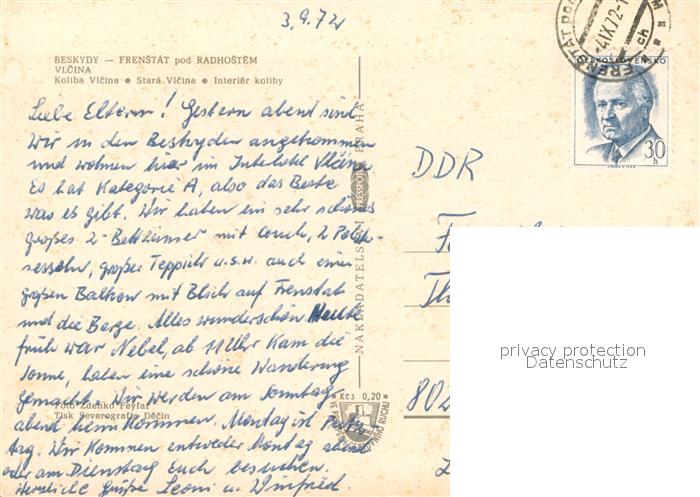 3.9.72
BESKYDY — FRENŠTÁT pod RADHOŠTĚM
VLČINA
Koliba Vlčina ● Stará Vlčina ● Interiér koliby
Liebe Eltern! Gestern abend sind
wir in den Beskyden angekommen
und wohnen hier im Interhotel Vlčina
Es hat Kategorie A, also das Beste
was es gibt. Wir haben ein sehr schönes
großes 2-Bettzimmer mit Couch, 2 Polster-
sesseln, großer Teppich u.s.w. auch einen
großen Balkon mit Blick auf Frenstat
und die Berge. Alles wunderschön. Heute
früh war Nebel, ab 11 Uhr kam die
Sonne, haben eine schöne Wanderung
gemacht. Wir werden am Sonntag
abend heim kommen. Montag ist
tag. Wir kommen entweder Montag abend
oder am Dienstag Euch besuchen.
Herzliche Grüße Leoni u. Winfried.
Foto Zdenko Feyfar
Tisk Severografia Děčín
NAKLADATELSTVÍ PRESSFOTO PRAHA
Kčs 0,20
ČESKOSLOVENSKO
30 h
-4.IX.72-1
DDR
802
privacy protection
Datenschutz